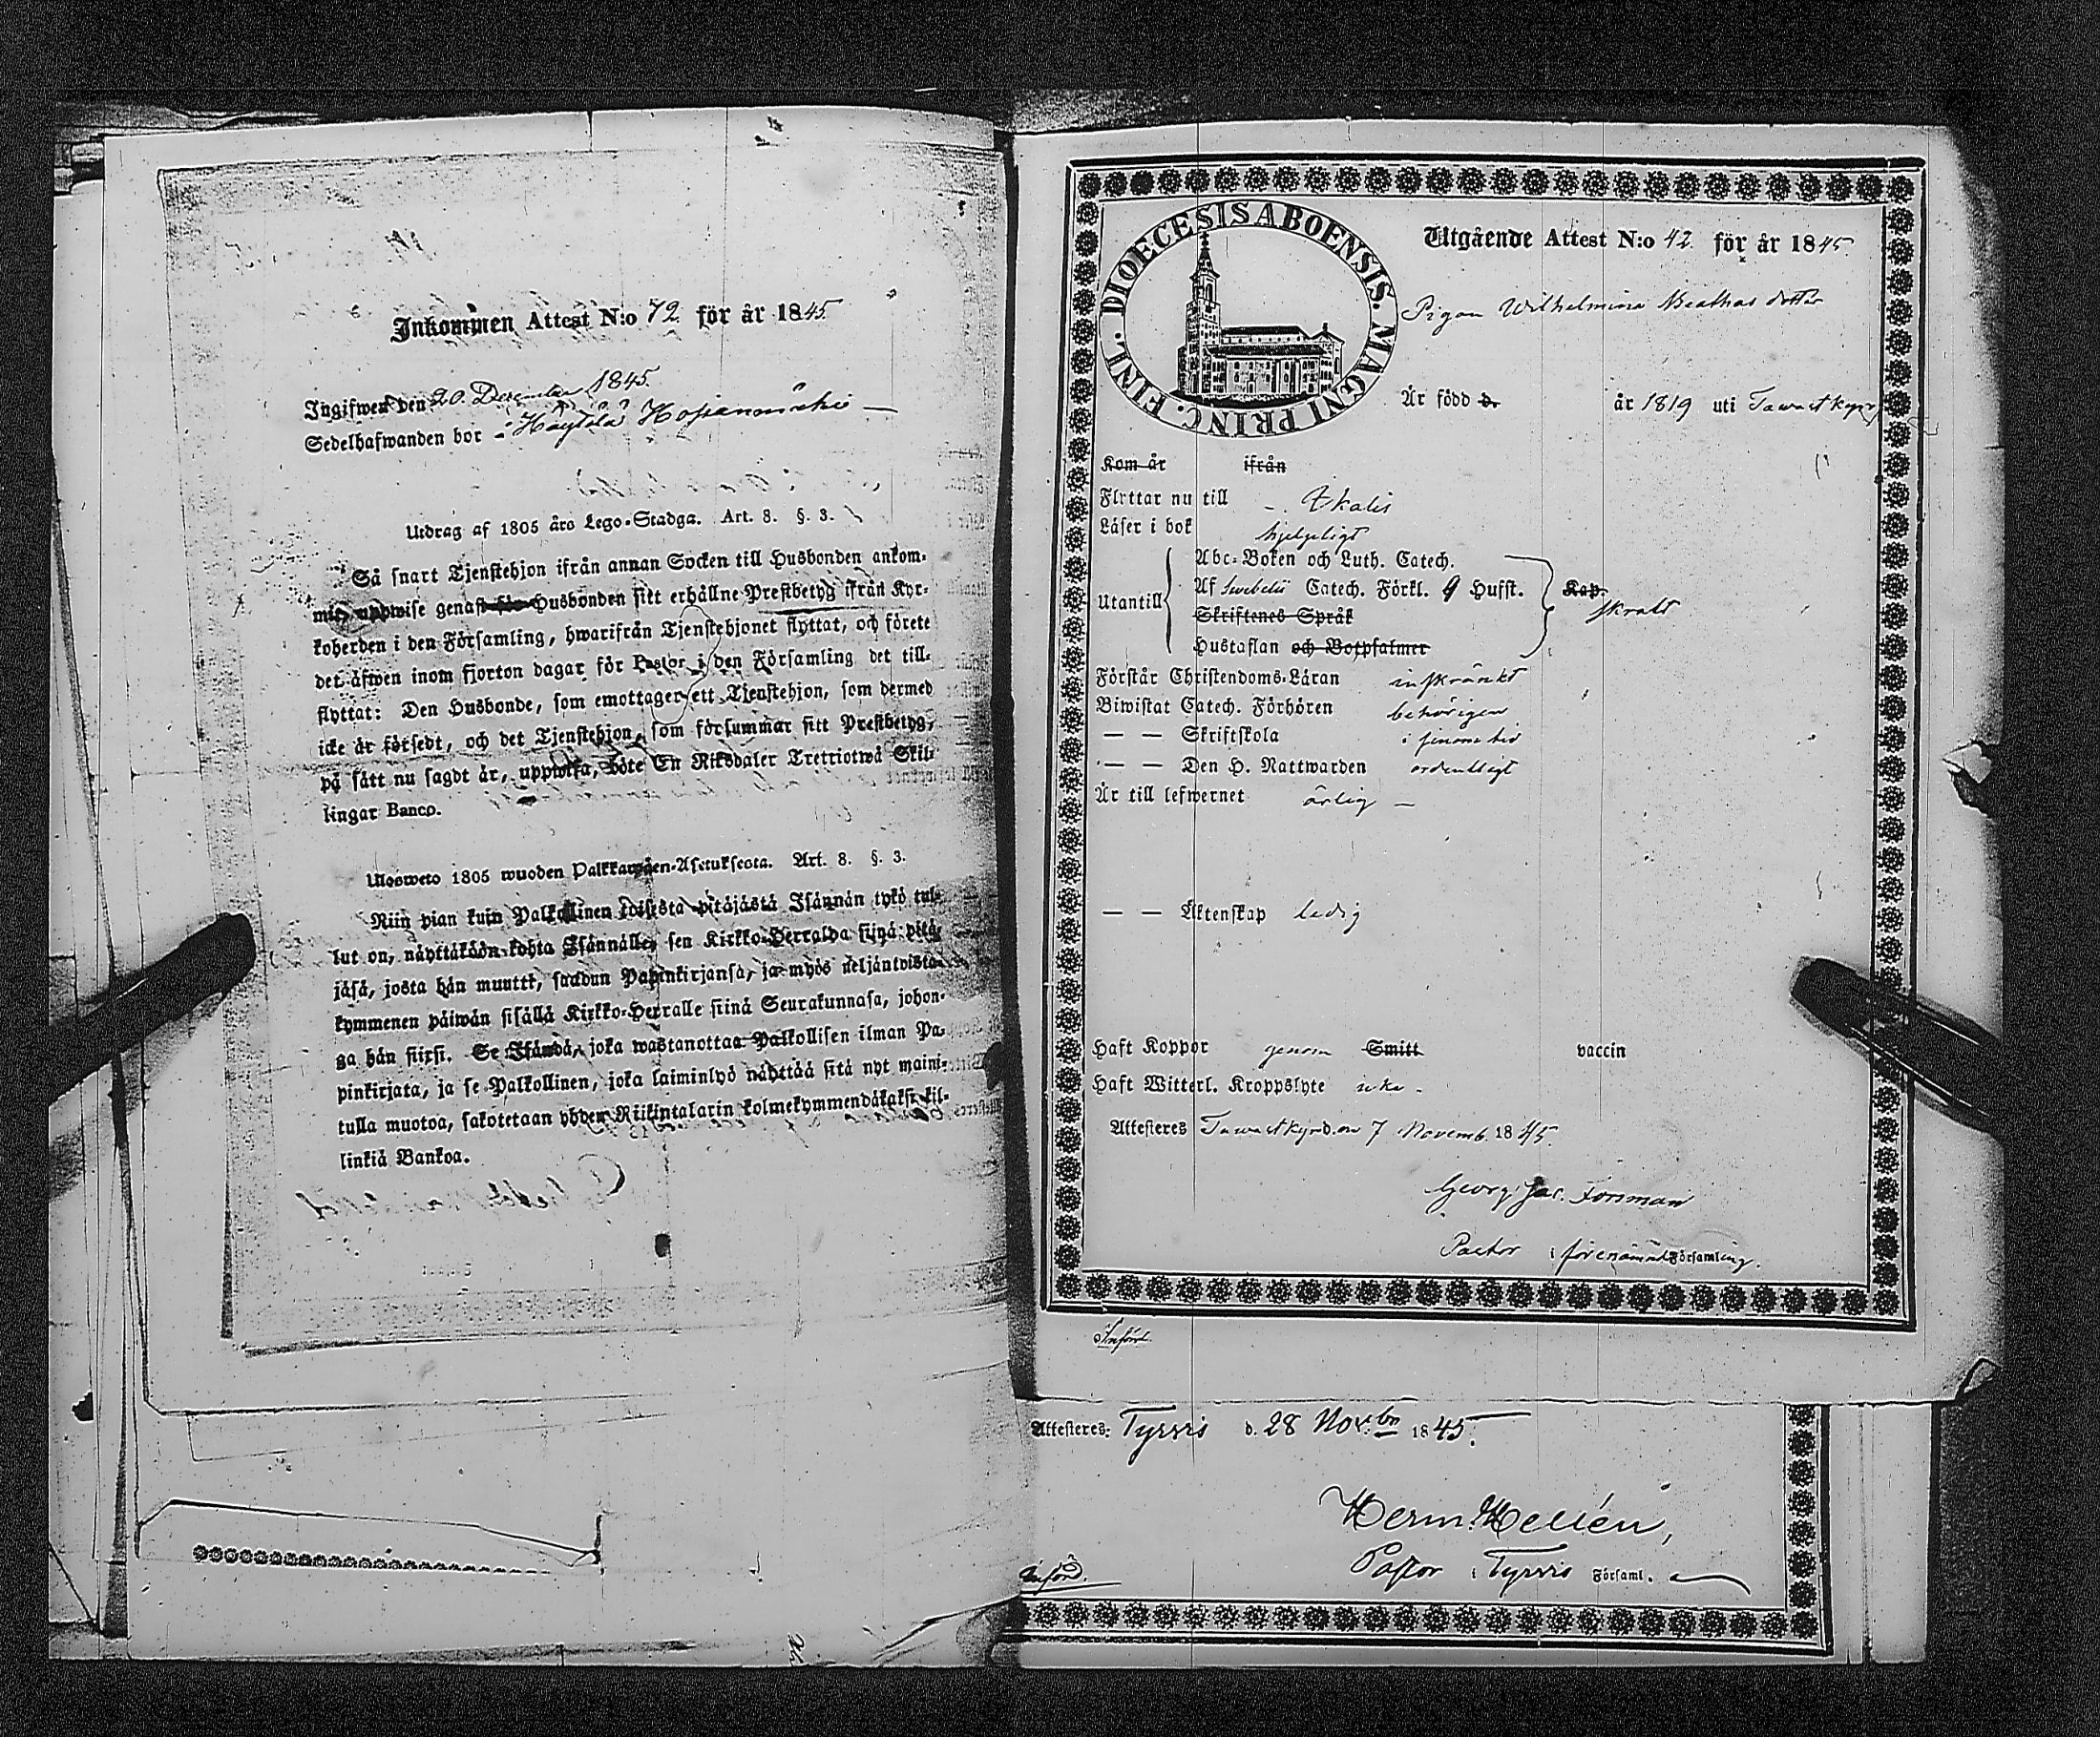 Inkommen Attest N:o 72. för år 1845.
Ingifwen den 20. December 1845.
Sedelhafwanden bor i Häytölä
Utdrag af 1805 åro Lego-Stadga. Art. 8. §. 3.
Så snart Tjenstehjon ifrån annan Socken till Husbonden ankom-
mit, uppwise genast för Husbonden sitt erhållne Prestbetyg ifrån Kyr-
koherden i den Församling, hwarifrån Tjenstehjonet flyttat, och förete
det äfwen inom fjorton dagar för Pastor i den Församling det till-
flyttat: Den Husbonde, som emottager ett Tjenstehjon, som dermed
icke är försedt, och det Tjenstehjon, som försummar sitt Prestbetyg,
på sätt nu sagdt är, uppwisa, böte En Riksdaler Trettiotwå Skil-
lingar Banco.
Ulosweto 1805 wuoden Palkkawäen-Asetuksesta. Art. 8. §. 3.
Niin pian kuin Palkollinen toisesta pitäjästä Isännän tykö tul-
lut on, näyttäköön kohta Isännälle, sen Kirkko-Herralda siinä pitä-
jäsä, josta hän muutti, saadun Papinkirjansa, ja myös neljäntoista-
kymmenen päiwän sisällä Kirkko-Herralle siinä Seurakunnasa, johon-
ga hän siirsi. Se Isändä, joka wastanottaa Palkollisen ilman Pa-
pinkirjata, ja se Palkollinen, joka laiminlyö näyttää sitä nyt maini-
tulla muotoa, sakotetaan yhden Riikintalarin kolmekymmendäkaksi kil-
linkiä Bankoa.
DIOECESIS ABOENSIS. MAGNI PRINC. FINL.
Utgående Attest N:o 42. för år 1845
Pigan Wilhelmina Beathas dotter
Är född d. år 1819 uti Tawastkyro
Kom år ifrån
Flyttar nu till Ikalis
Läser i bok hjelpeligt
Abc-Boken och Luth. Catech.
Utantill Af Swebelii Catech. Förkl. 9 Hufst. Kap.
Skriftenes Språk
Hustaflan och Botpsalmer
Förstår Christendoms-Läran inskränkt
Biwistat Catech. Förhören behörigen
— — Skriftskola i sinom tid
— — Den H. Nattwarden ordentligt
Är till lefwernet ärlig —
— — Äktenskap ledig
Haft Koppor genom Smitt vaccin
Haft Witterl. Kroppslyte icke -
Attesteres Tawastkyro den 7 Novemb. 1845.
Georg Jac. Forsman
Pastor i förenämnd Församling.
Införd.
Attesteres: Tyrvis d. 28 Nov:bn 1845.
Herm. Hellén,
Pastor i Tyrvis Församl.
Införd.